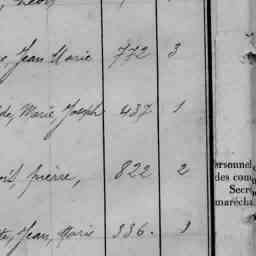 Jean Marie 772 3
de, Marie Joseph 437 1
oit, pierre, 822 2
te, Jean, Marie 336. 1
ersonnel,
des com
Secré
marécha